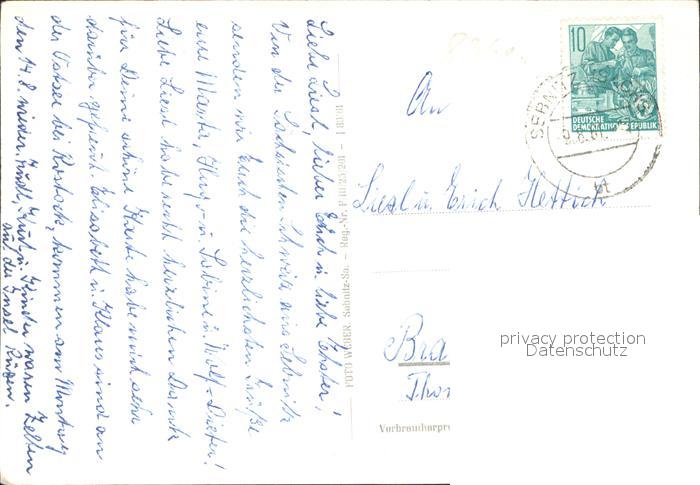 Liebe Liesel, lieber Erich u. liebe Tochter!
Von der Sächsischen Schweiz aus Sebnitz
senden wir Euch die herzlichsten Grüße
eure Martha, Hugo u. Sabine u. Wolf-Dieter!
Liebe Liesl habe recht herzlichen Dank
für Deine schöne Karte habe mich sehr
darüber gefreut. Elisabeth u. Klaus sind an
der Ostsee bei Rostock, kommen am Montag
den 14.8. wieder. Kinder waren Zelten
auf der Insel Rügen.
FOTO WEBER, Sebnitz-Sa. – Reg.-Nr. P
10
DEUTSCHE
DEMOKRATISCHE REPUBLIK
SEBNITZ
An
Liesl u. Erich Hettich
Bra
Thor
Verbraucherpre
privacy protection
Datenschutz